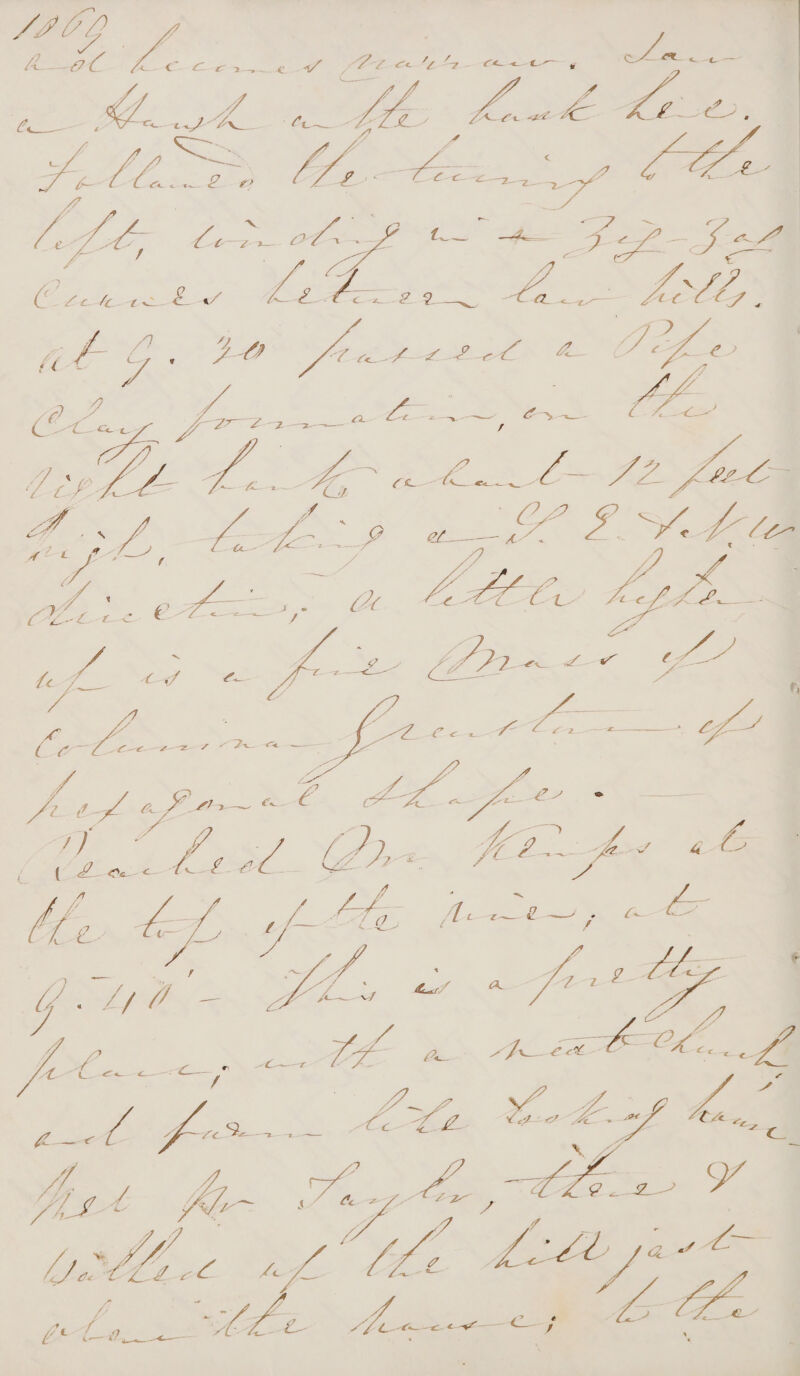 1869
and becomes narrow. Saw
a Hawk on the bank here.
Followed the turning to the
left, winding in a Zig-Zag
Curves between low hills.
at 9.30 passed a Pipe
Clay formation, on the
right bank about 12 feet
high, taking a S. E. & N. W
direction; a little higher
up is a fine Mass of
Columnar Greenstone of
hexagonal shape. —
Reached Mr Kemps at
the top of the river; at
9.40' - This is a pretty
place; with a neat Church,
and farm like looking house
Met Mr Taylor, there &
Walked up the hill just
above the house; to the